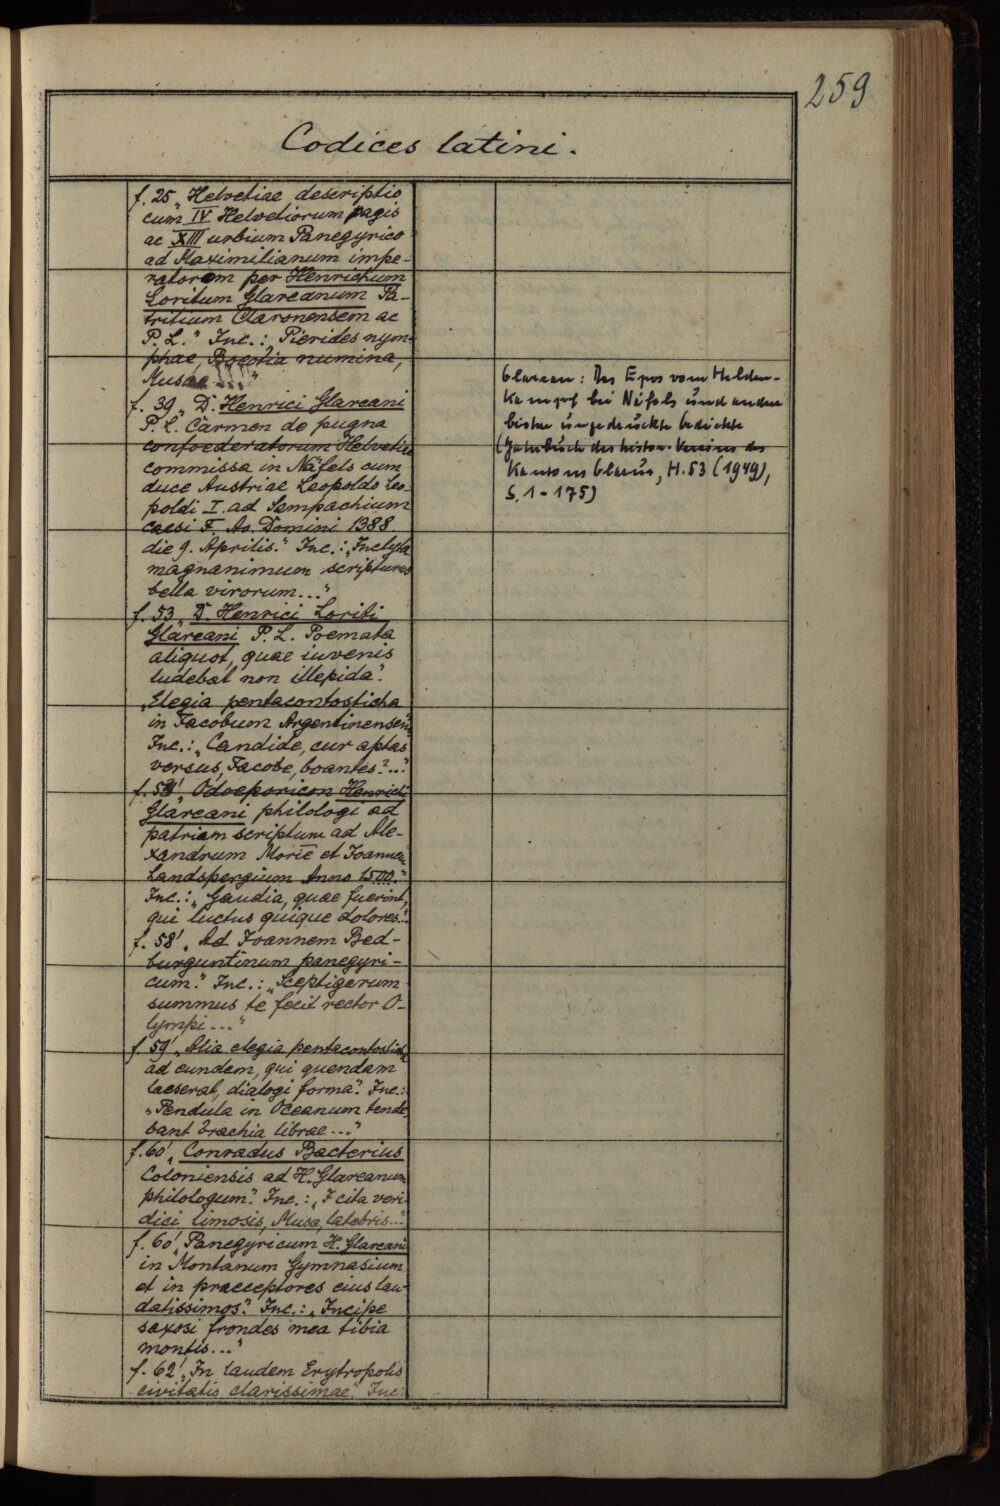 259
Codices latini.
f. 25 „Helvetiae descriptio
cum IV Helvetiorum pagis
ac XIII urbium Panegyrico
ad Maximilianum impe-
ratorem per Henrichum
Loritum Glareanum Pa-
tritium Claronensem ac
P. L." Inc.: Pierides nym-
phae, Boeotia numina,
Musae ..."
f. 39 „D. Henrici Glareani
P. L. Carmen de pugna
confoederatorum Helvetiae
commissa in Näfels cum
duce Austriae Leopoldo Leo-
poldi I. ad Sempachium
caesi F. Ao. Domini 1388
die 9. Aprilis." Inc.: „Inclyta
magnanimum scripturus
bella virorum..."
f. 53 „D. Henrici Loriti
Glareani P. L. Poemata
aliquot, quae iuvenis
ludebat non illepida".
„Elegia pentacontosticha
in Jacobum Argentinensem"
Inc.: „Candide, cur aptas
versus, Jacobe, boantes?..."
f. 53' „Odoeporicon Henrici
Glareani philologi ad
patriam scriptum ad Ale-
xandrum Morie et Joannem
Landspergium Anno 1500."
Inc.: „Gaudia, quae fuerint,
qui luctus quique dolores..."
f. 58' „Ad Joannem Bed-
burguntinum panegyri-
cum." Inc.: „Sceptigerum
summus te fecit rector O-
lympi ..."
f. 59' „Alia elegia pentacontosticha
ad eundem, qui quendam
laeserat, dialogi forma". Inc.:
„Pendula in Oceanum tende
bant brachia librae ..."
f. 60' „Conradus Bacterius
Coloniensis ad H. Glareanum
philologum". Inc.: „I cita veri-
dici limosis, Musa, latebris..."
f. 60' „Panegyricum H. Glareani
in Montanum Gymnasium
et in praeceptores eius lau-
datissimos". Inc.: „Incipe
saxosi frondes mea tibia
montis..."
f. 62' „In laudem Erytropolis
civitatis clarissimae". Inc.:
Glarean: Das Epos vom Helden-
kampf bei Näfels und andere
bisher ungedruckte Gedichte
(Jahrbuch des histor. Vereins des
Kantons Glarus, H. 53 (1949),
S. 1-175)